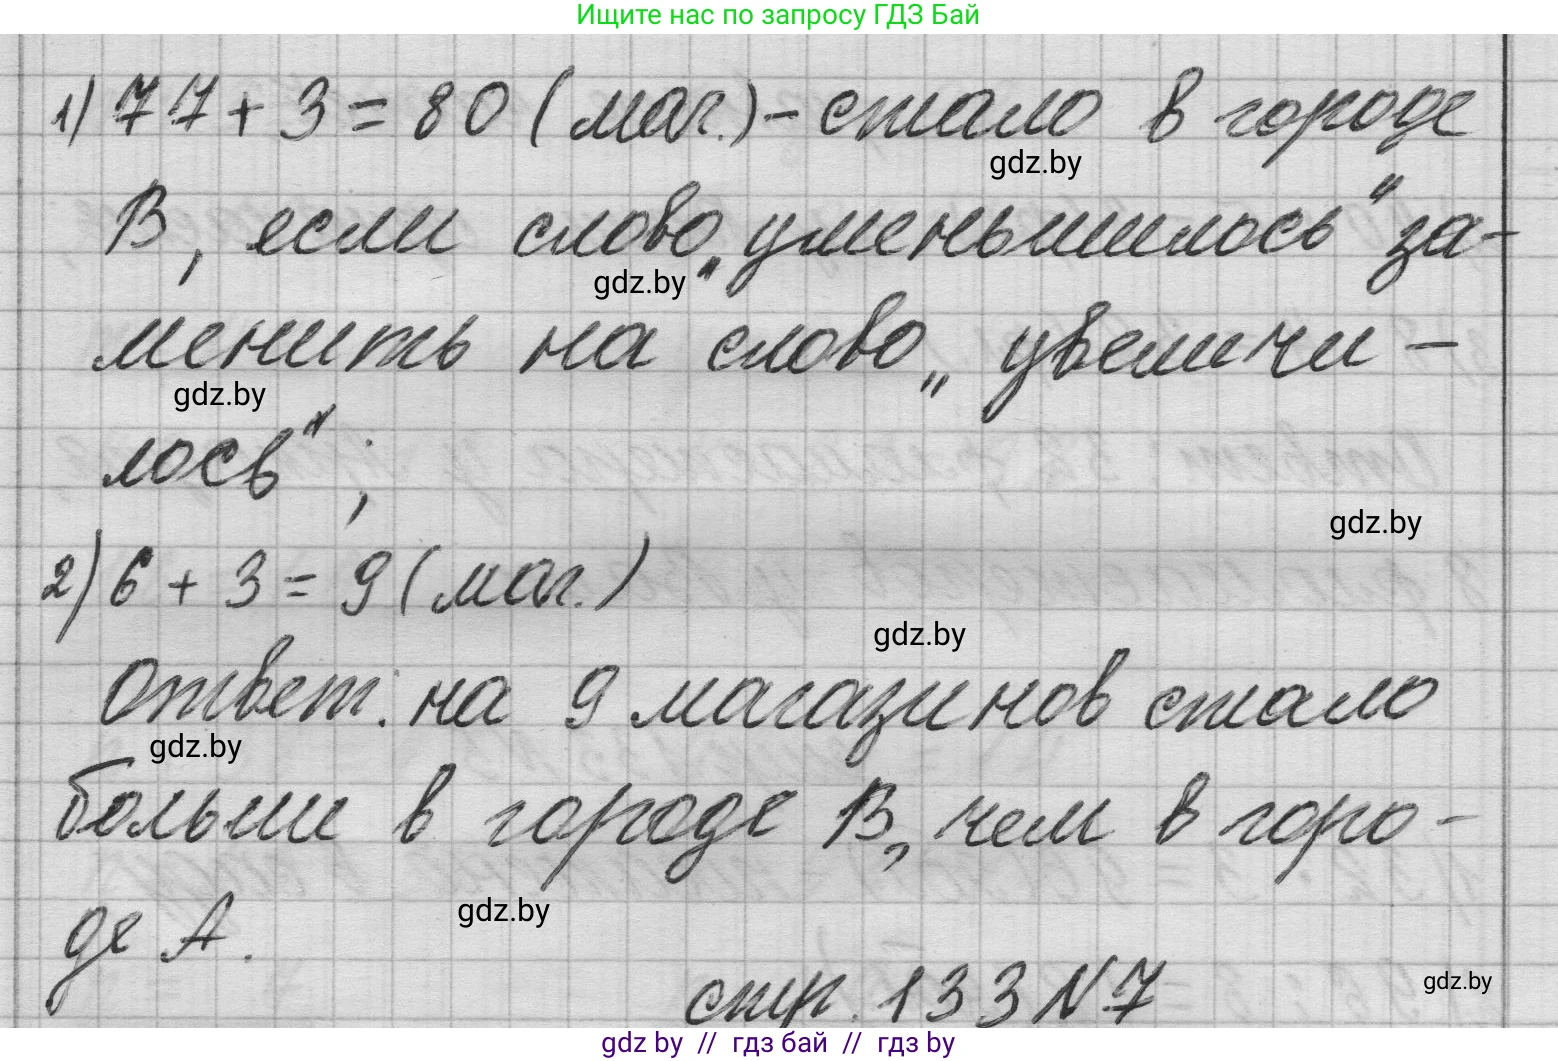 Ищите нас по запросу ГДЗ Бай
1) 77 + 3 = 80 (маг.) - стало в городе
gdz.by
В, если слово „уменьшилось“ за-
gdz.by
менить на слово „увеличи-
gdz.by
лось“;
gdz.by
2) 6 + 3 = 9 (маг.)
gdz.by
Ответ: на 9 магазинов стало
gdz.by
больше в городе В, чем в горо-
де А.
gdz.by
стр. 133 N.7
gdz.by
gdz by // гдз бай // гдз by